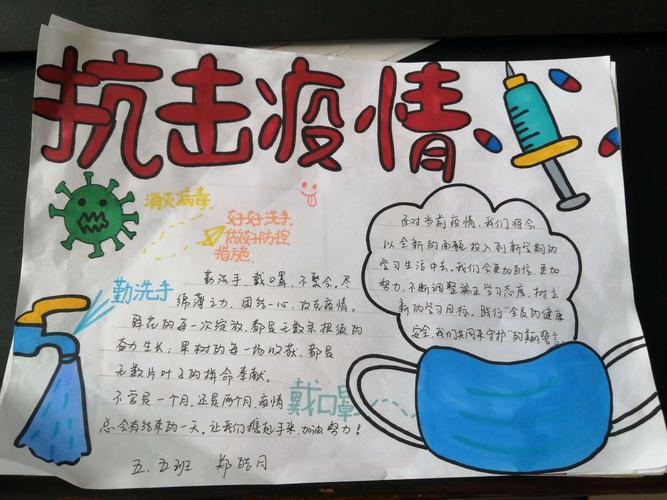 抗击疫情
消灭病毒
好好洗手
做好防控
措施
勤洗手
勤洗手,戴口罩,不聚会,尽
绵薄之力,团结一心,抗击疫情。
鲜花的每一次绽放,都是无数末根须的
奋力生长;果树的每一场收获,都是
无数片叶子的拼命奉献。
不管是一个月,还是两个月,疫情
总会有结束的一天。让我们携起手来,加油努力!
五.五班 郑皓月
戴口罩
面对当前疫情,我们将会
以全新的面貌投入到新学期的
学习生活中去。我们会更加自信,更加
努力,不断调整端正学习态度,树立
新的学习目标。践行“全民的健康
安全,我们共同来守护”的新誓言。